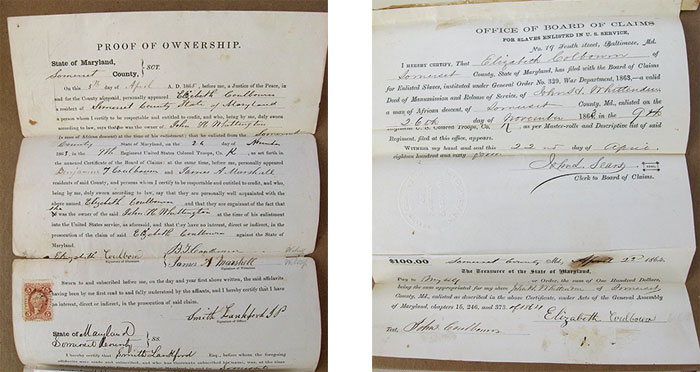 PROOF OF OWNERSHIP.
State of Maryland,
Somerset County, SCT.
On this 8th day of April A. D. 186, before me, a Justice of the Peace, in
and for the County aforesaid, personally appeared Elizabeth Coulbourn
a resident of Somerset County State of Maryland
a person whom I certify to be respectable and entitled to credit, and who, being by me, duly sworn
according to law, says that she was the owner of John H Whittington
(a man of African descent) at the time of his enlistment; that he enlisted from the Somerset
County State of Maryland, on the 26 day of
186, in the 9th Regiment United States Colored Troops, Co. K, as set forth in
the annexed Certificate of the Board of Claims; at the same time, before me, personally appeared
Benjamin T Coulbourn and James A Marshall
residents of said County, and persons whom I certify to be respectable and entitled to credit, and who,
being by me, duly sworn according to law, say that they are personally well acquainted with the
above named Elizabeth Coulbourn, and that they are cognizant of the fact that
she was the owner of said John H Whittington at the time of his enlistment
into the United States service, as aforesaid, and that they have no interest, direct or indirect, in the
prosecution of the claim of said Elizabeth Coulbourn against the State of
Maryland.
Elizabeth Coulbourn
James A Marshall
Sworn to and subscribed before me, on the day and year first above written, the said affidavits
having been by me first read to and fully understood by the affiants, and I hereby certify that I have
no interest, direct or indirect, in the prosecution of said claim.
Smith Lankford J P
State of Maryland
Somerset County SS
I hereby certify that Smith Lankford Esq., before whom the foregoing
OFFICE OF BOARD OF CLAIMS
FOR SLAVES ENLISTED IN U. S. SERVICE,
No. 19 South street, Baltimore, Md.
I HEREBY CERTIFY, That Elizabeth Colbourn of
Somerset County, State of Maryland, has filed with the Board of Claims
for Enlisted Slaves, instituted under General Order No. 329, War Department, 1863,—a valid
Deed of Manumission and Release of Service of John H. Whittington
a man of African descent, of Somerset County, Md., enlisted on the
26th day of November 186, in the 9th
Regiment U. S. Colored Troops, Co. K, as per Muster-rolls and Descriptive list of said
Regiment, filed at this office, appears.
WITNESS my hand and seal this 22nd day of April
eighteen hundred and sixty
Clerk to Board of Claims.
$100.00 Somerset County Md, April 186
The Treasurer of the State of Maryland,
Pay to Myself or Order, the sum of One Hundred Dollars,
being the sum appropriated for my slave John H Whittington of Somerset
County, Md., enlisted as described in the above Certificate, under Acts of the General Assembly
of Maryland, chapters 15, 246, and 373 of 1864
Elizabeth Coulbourn
Test, John Coulbourn